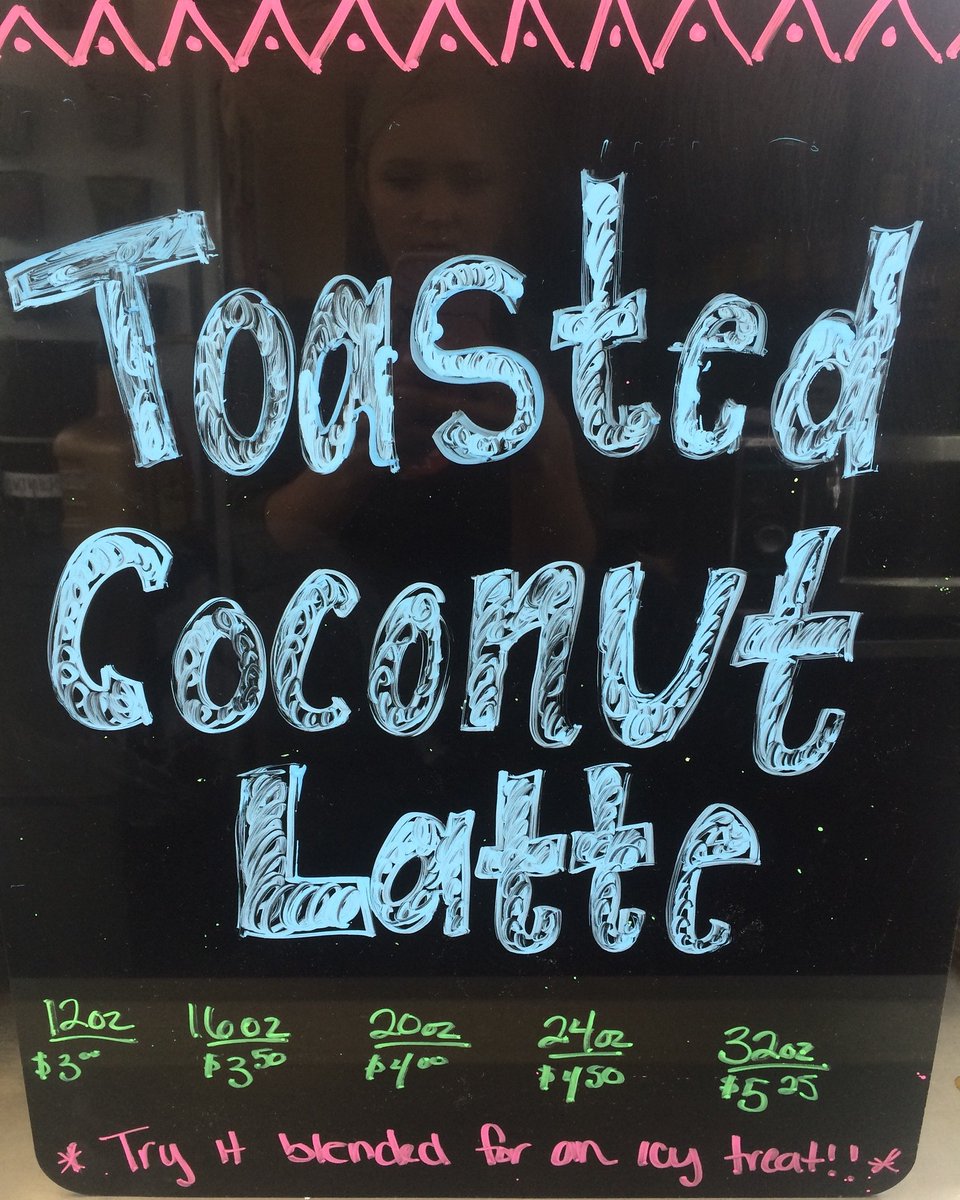 Toasted
Coconut
Latte
12oz 16oz 20oz 24oz 32oz
$3.00 $3.50 $4.00 $4.50 $5.25
* Try it blended for an icy treat!! *